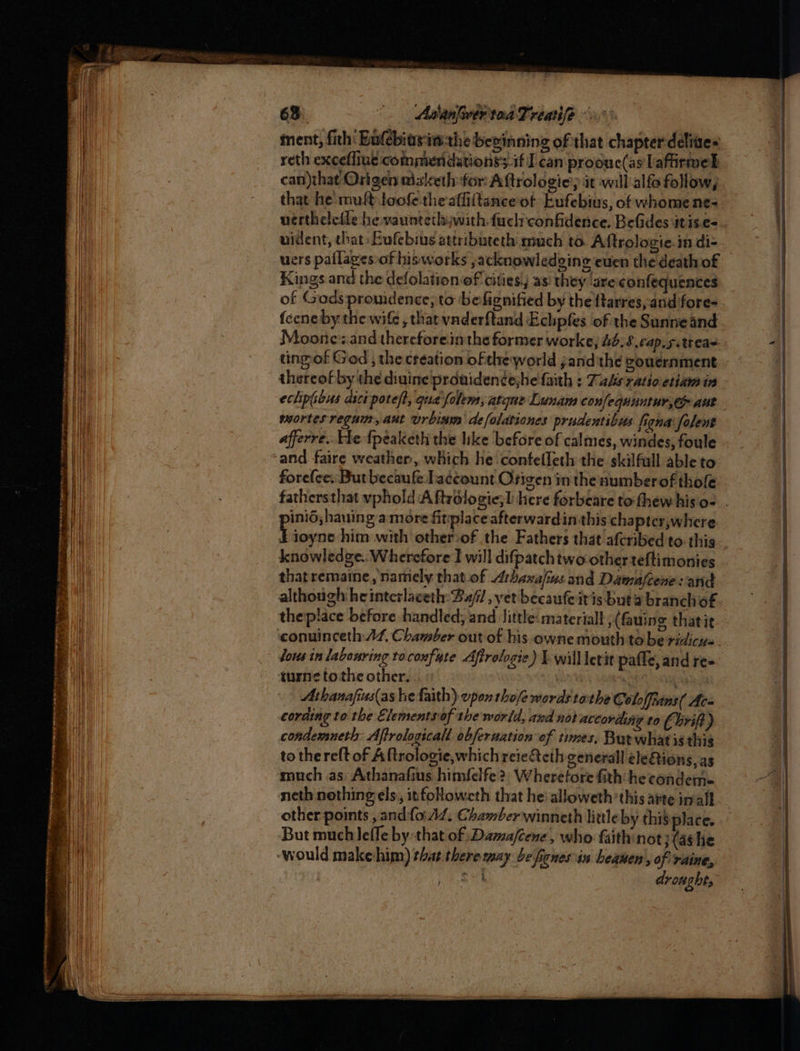 68 An answer to a Treatise
ment, sith Eusebius in the beginning of that chapter deliue-
reth excessiue commendations; if I can prooue (as I affirme I
can) that Origen maketh for Astrologie; it will also follow,
that he must loose the assistance of Eusebius, of whome ne-
uerthelesse he vaunteth, with such confidence. Besides it is e-
uident, that Eusebius attributeth much to Astrologie in di-
uers passages of his works, acknowledging euen the death of
Kings and the desolation of cities, as they are consequences
of Gods prouidence, to be signified by the starres, and fore-
seene by the wise, that vnderstand Eclipses of the Sunne and
Moone: and therefore in the former worke, lib. 8. cap. 5. trea-
ting of God, the creation of the world, and the gouernment
thereof by the diuine prouidence, he saith: Talis ratio etiam in
eclipsibus dici potest, quæ solem, atque Lunam consequuntur, & aut
mortes regum, aut vrbium desolationes prudentibus signa solent
afferre. He speaketh the like before of calmes, windes, foule
and faire weather, which he confesseth the skilfull able to
foresee. But because I account Origen in the number of those
fathers that vphold Astrologie, I here forbeare to shew his o-
pinió, hauing a more fit place afterward in this chapter, where
I ioyne him with other of the Fathers that ascribed to this
knowledge. Wherefore I will dispatch two other testimonies
that remaine, namely that of Athanasius and Damascene: and
although he interlaceth Basil, yet because it is but a branch of
the place before handled, and little materiall, (sauing that it
conuinceth M. Chamber out of his owne mouth to be ridicu-
lous in labouring to confute Astrologie) I will let it passe, and re-
turne to the other.
Athanasius (as he saith) vpon those words to the Colossians (Ac-
cording to the Elements of the world, and not according to Christ)
condemneth Astrologicall obseruation of times. But what is this
to the rest of Astrologie, which reiecteth generall elections, as
much as Athanasius himselfe? Wherefore sith he condem-
neth nothing els, it followeth that he alloweth this arte in all
other points, and so M. Chamber winneth little by this place.
But much lesse by that of Damascene, who saith not; (as he
would make him) that there may be signes in heauen, of raine,
drought,